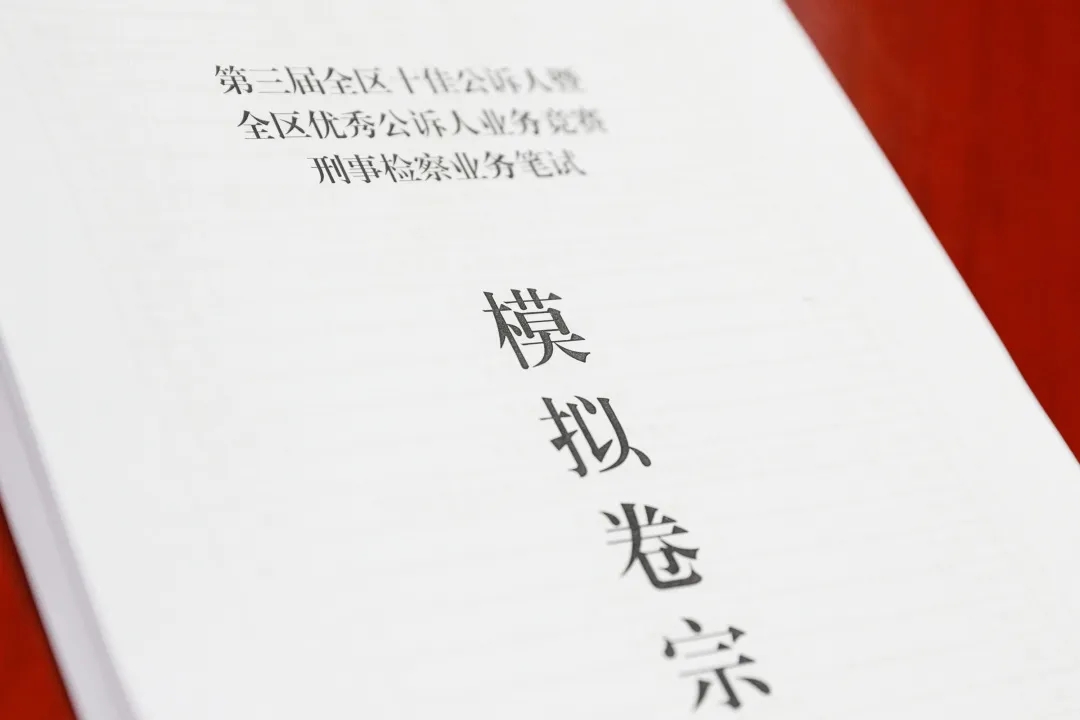 第三届全区十佳公诉人暨
全区优秀公诉人业务竞赛
刑事检察业务笔试
模
拟
卷
宗